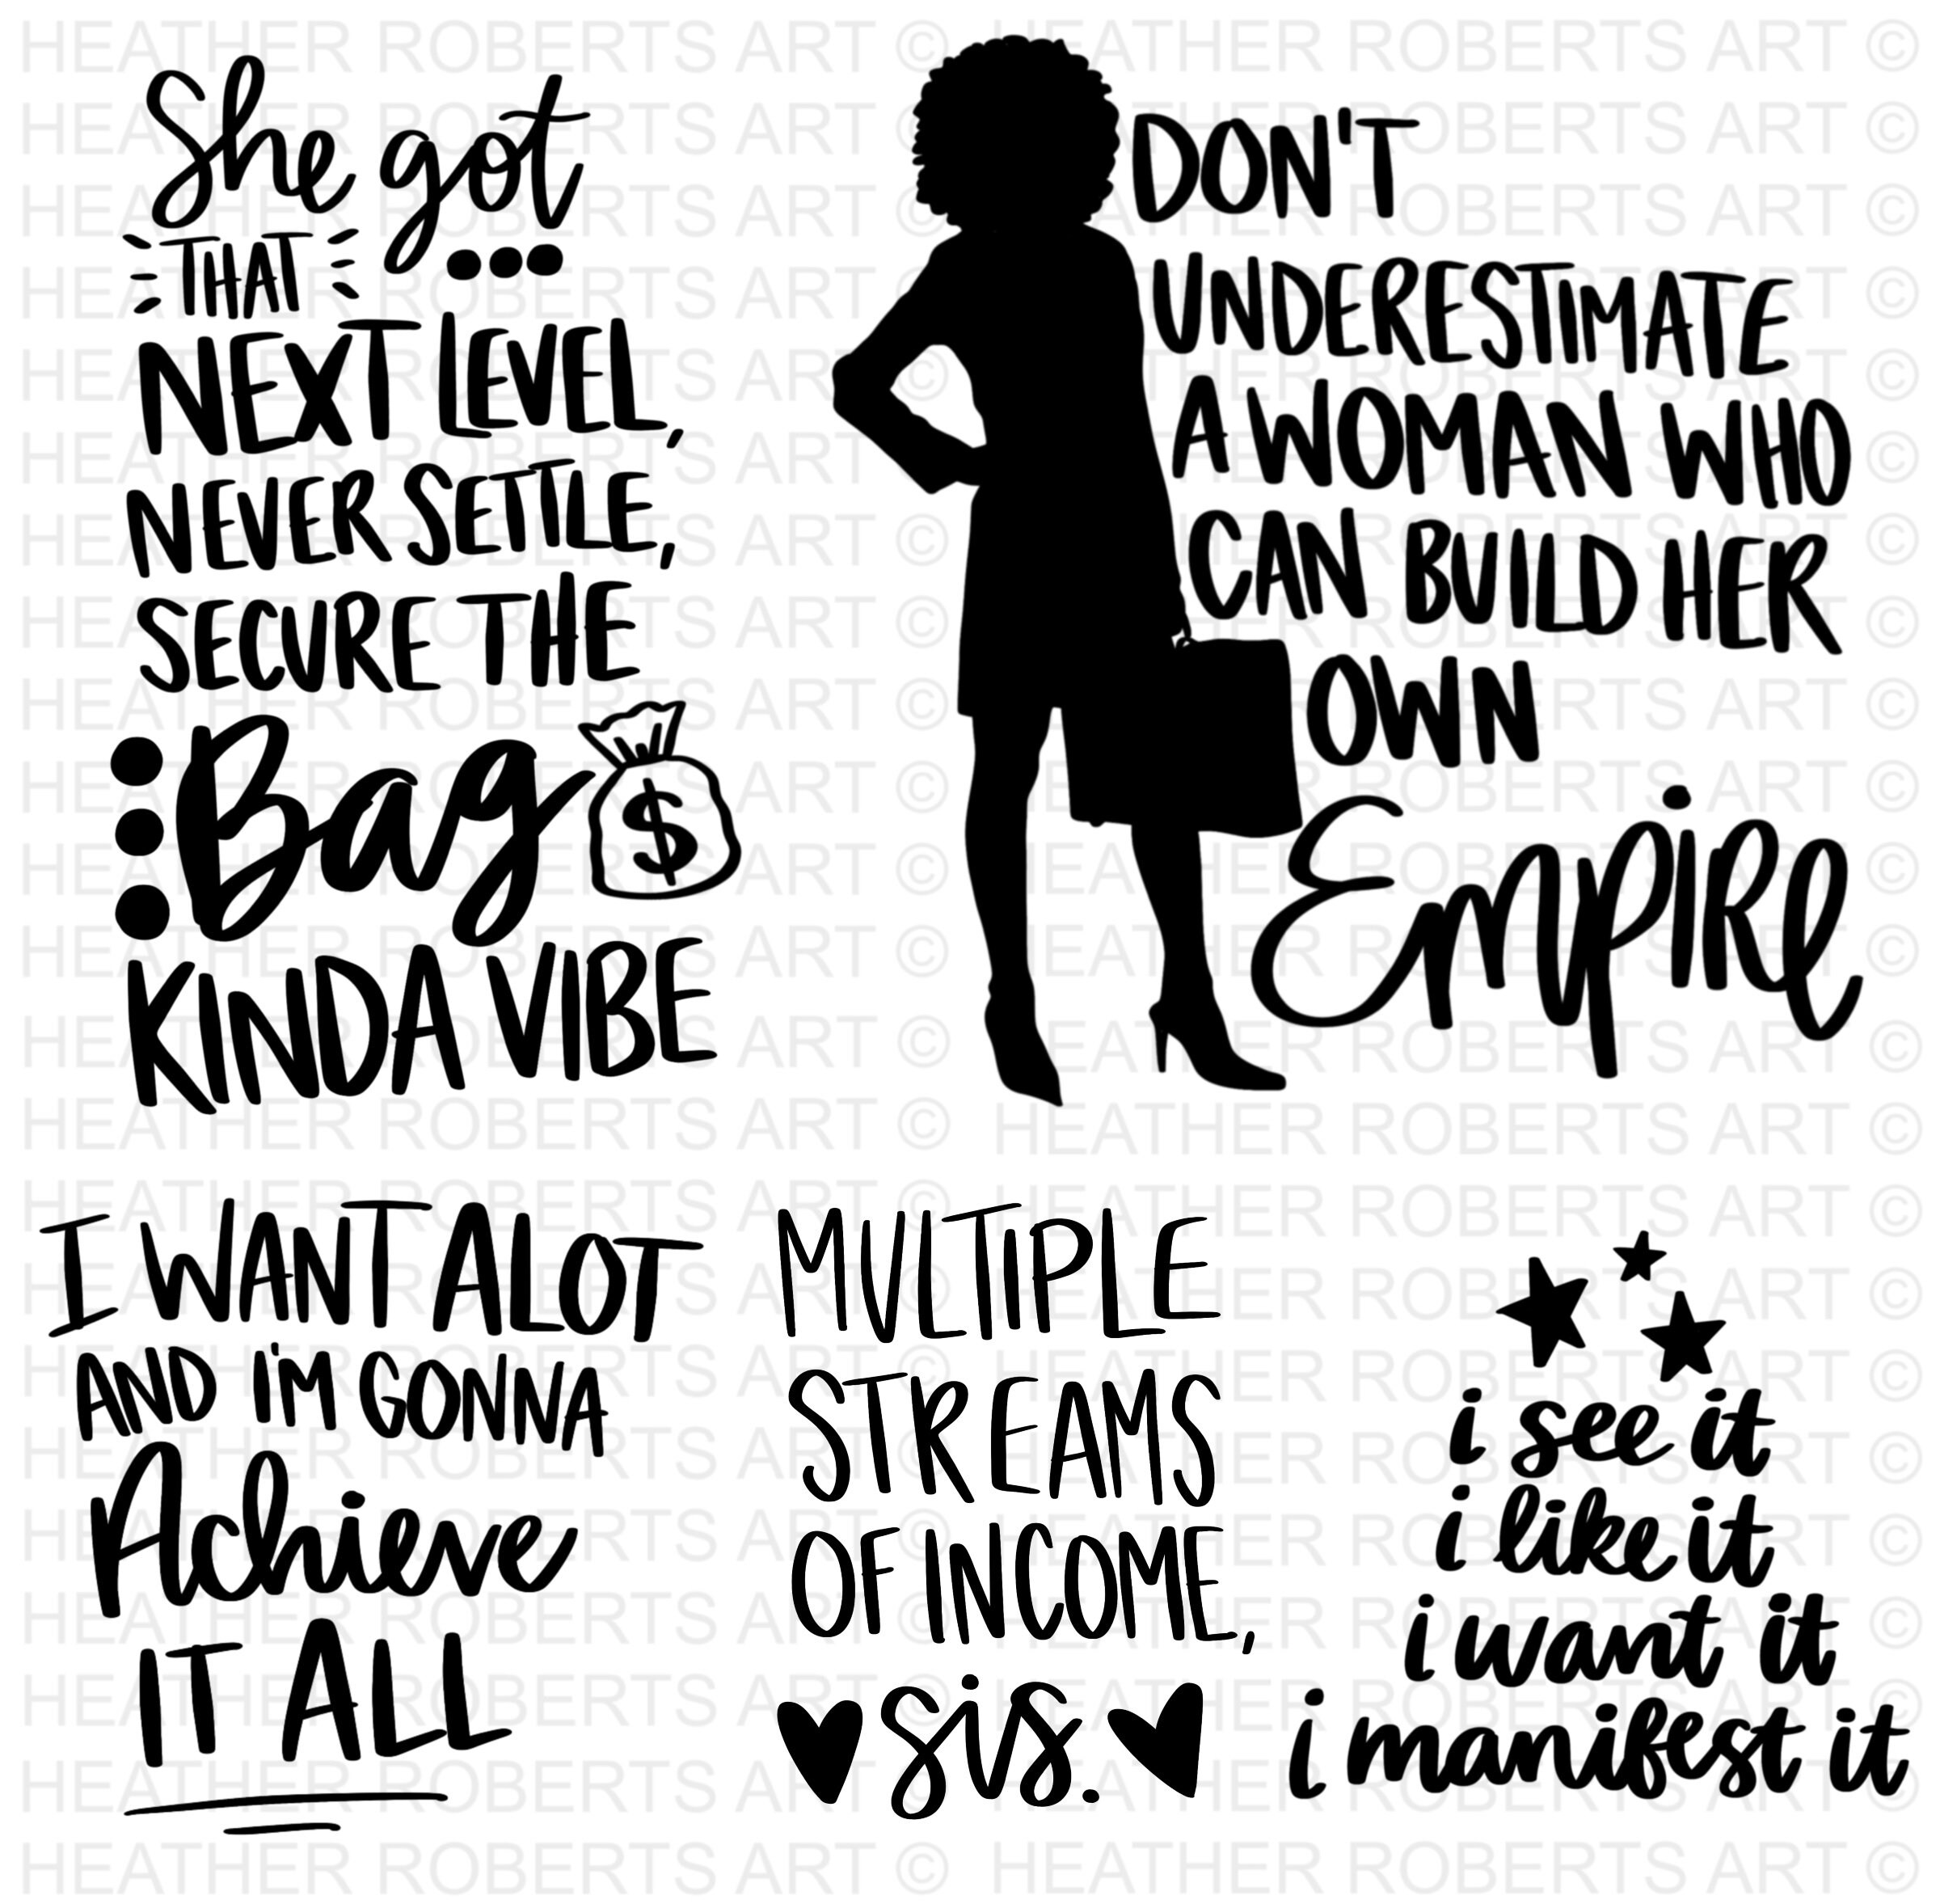 She got
THAT ...
NEXT LEVEL,
NEVER SETTLE,
SECURE THE
Bag $
KINDA VIBE
DON'T
UNDERESTIMATE
A WOMAN WHO
CAN BUILD HER
OWN
EMPIRE
I WANT ALOT
AND I'M GONNA
Achieve
IT ALL
MULTIPLE
STREAMS
OF INCOME,
sis.
i see it
i like it
i want it
i manifest it
HEATHER ROBERTS ART © HEATHER ROBERTS ART ©